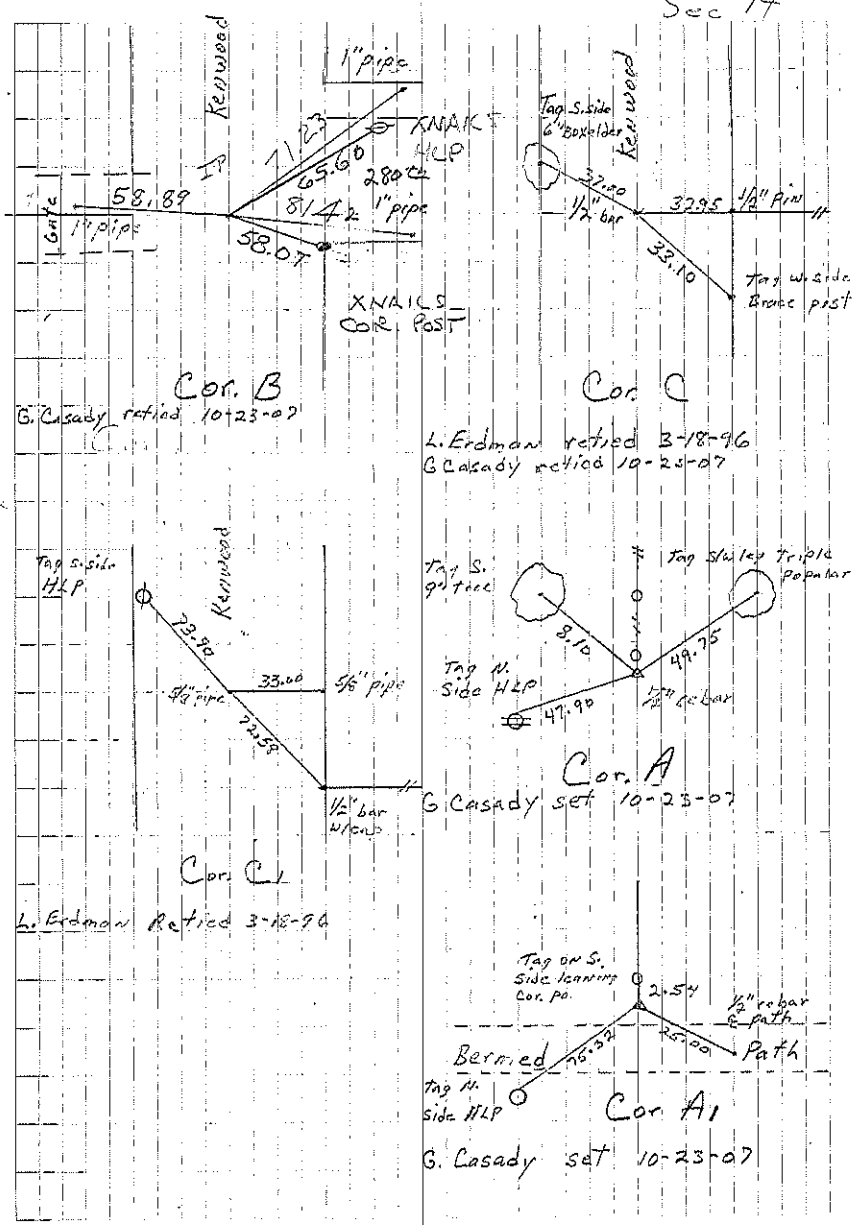 Sec 14
Kenwood
1" pipe
IP
71.23
XNAILS
HLP
65.60
280th
58.89
814
2
1" pipe
Gate
1" pipe
58.07
XNAILS
COR. POST
Cor. B
G. Casady retied 10-23-07
Kenwood
Tag S. side
6" Boxelder
37.00
1/2" bar
32.95
1/2" Pin
33.10
Tag W. side
Brace post
Cor. C
L. Erdman retied 3-18-96
G Casady retied 10-23-07
Kenwood
Tag S. side
HLP
73.90
5/8" pipe
33.00
5/8" pipe
72.58
1/2" bar
W/cap
Cor. C1
L. Erdman Retied 3-18-96
Tag S.
9" tree
Tag S/W leg Triple
Popular
8.10
49.75
Tag N.
Side HLP
47.90
1/2" rebar
Cor. A
G Casady set 10-23-07
Tag on S.
Side leaning
Cor. po.
2.54
1/2" rebar
℄ path
Bermed
25.00
Path
Tag N.
side HLP
Cor A1
G. Casady set 10-23-07